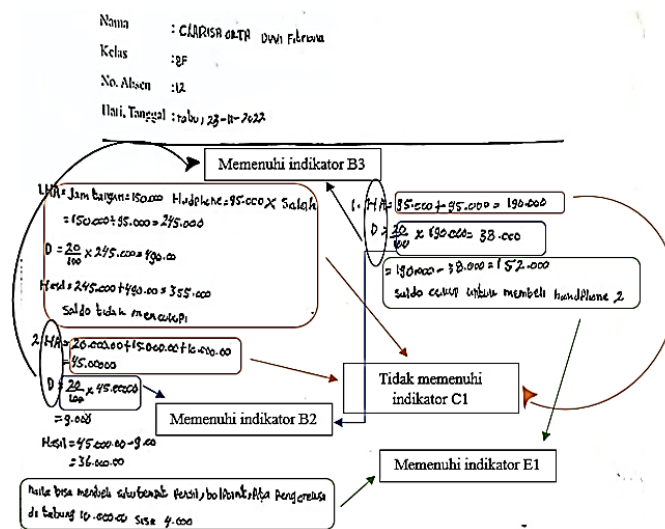 Nama : CLARISA OKTA Dwi Fitriana
Kelas : 8F
No. Absen : 12
Hari, Tanggal : rabu, 23-11-2022
Memenuhi indikator B3
1. HA = Jam tangan = 150.000 Hadphone = 95.000 X Salah
= 150.000 + 95.000 = 245.000
D = 20/100 x 245.000 = 490.00
Hasil = 245.000 + 490.00 = 355.000
Saldo tidak mencukupi
1. HA = 95.000 + 95.000 = 190.000
D = 20/100 x 190.000 = 38.000
= 190.000 - 38.000 = 152.000
Saldo cukup untuk membeli handphone 2
2. HA = 20.000.00 + 15.000.00 + 10.000.00
= 45.00000
D = 20/100 x 45.00000
= 9.000
Hasil = 45.000.00 - 9.00
= 36.000.00
Tidak memenuhi
indikator C1
Memenuhi indikator B2
Memenuhi indikator E1
bisa membeli tempat Pensil, bolpoint,
di tabung 10.000.00 Sisa 4.000